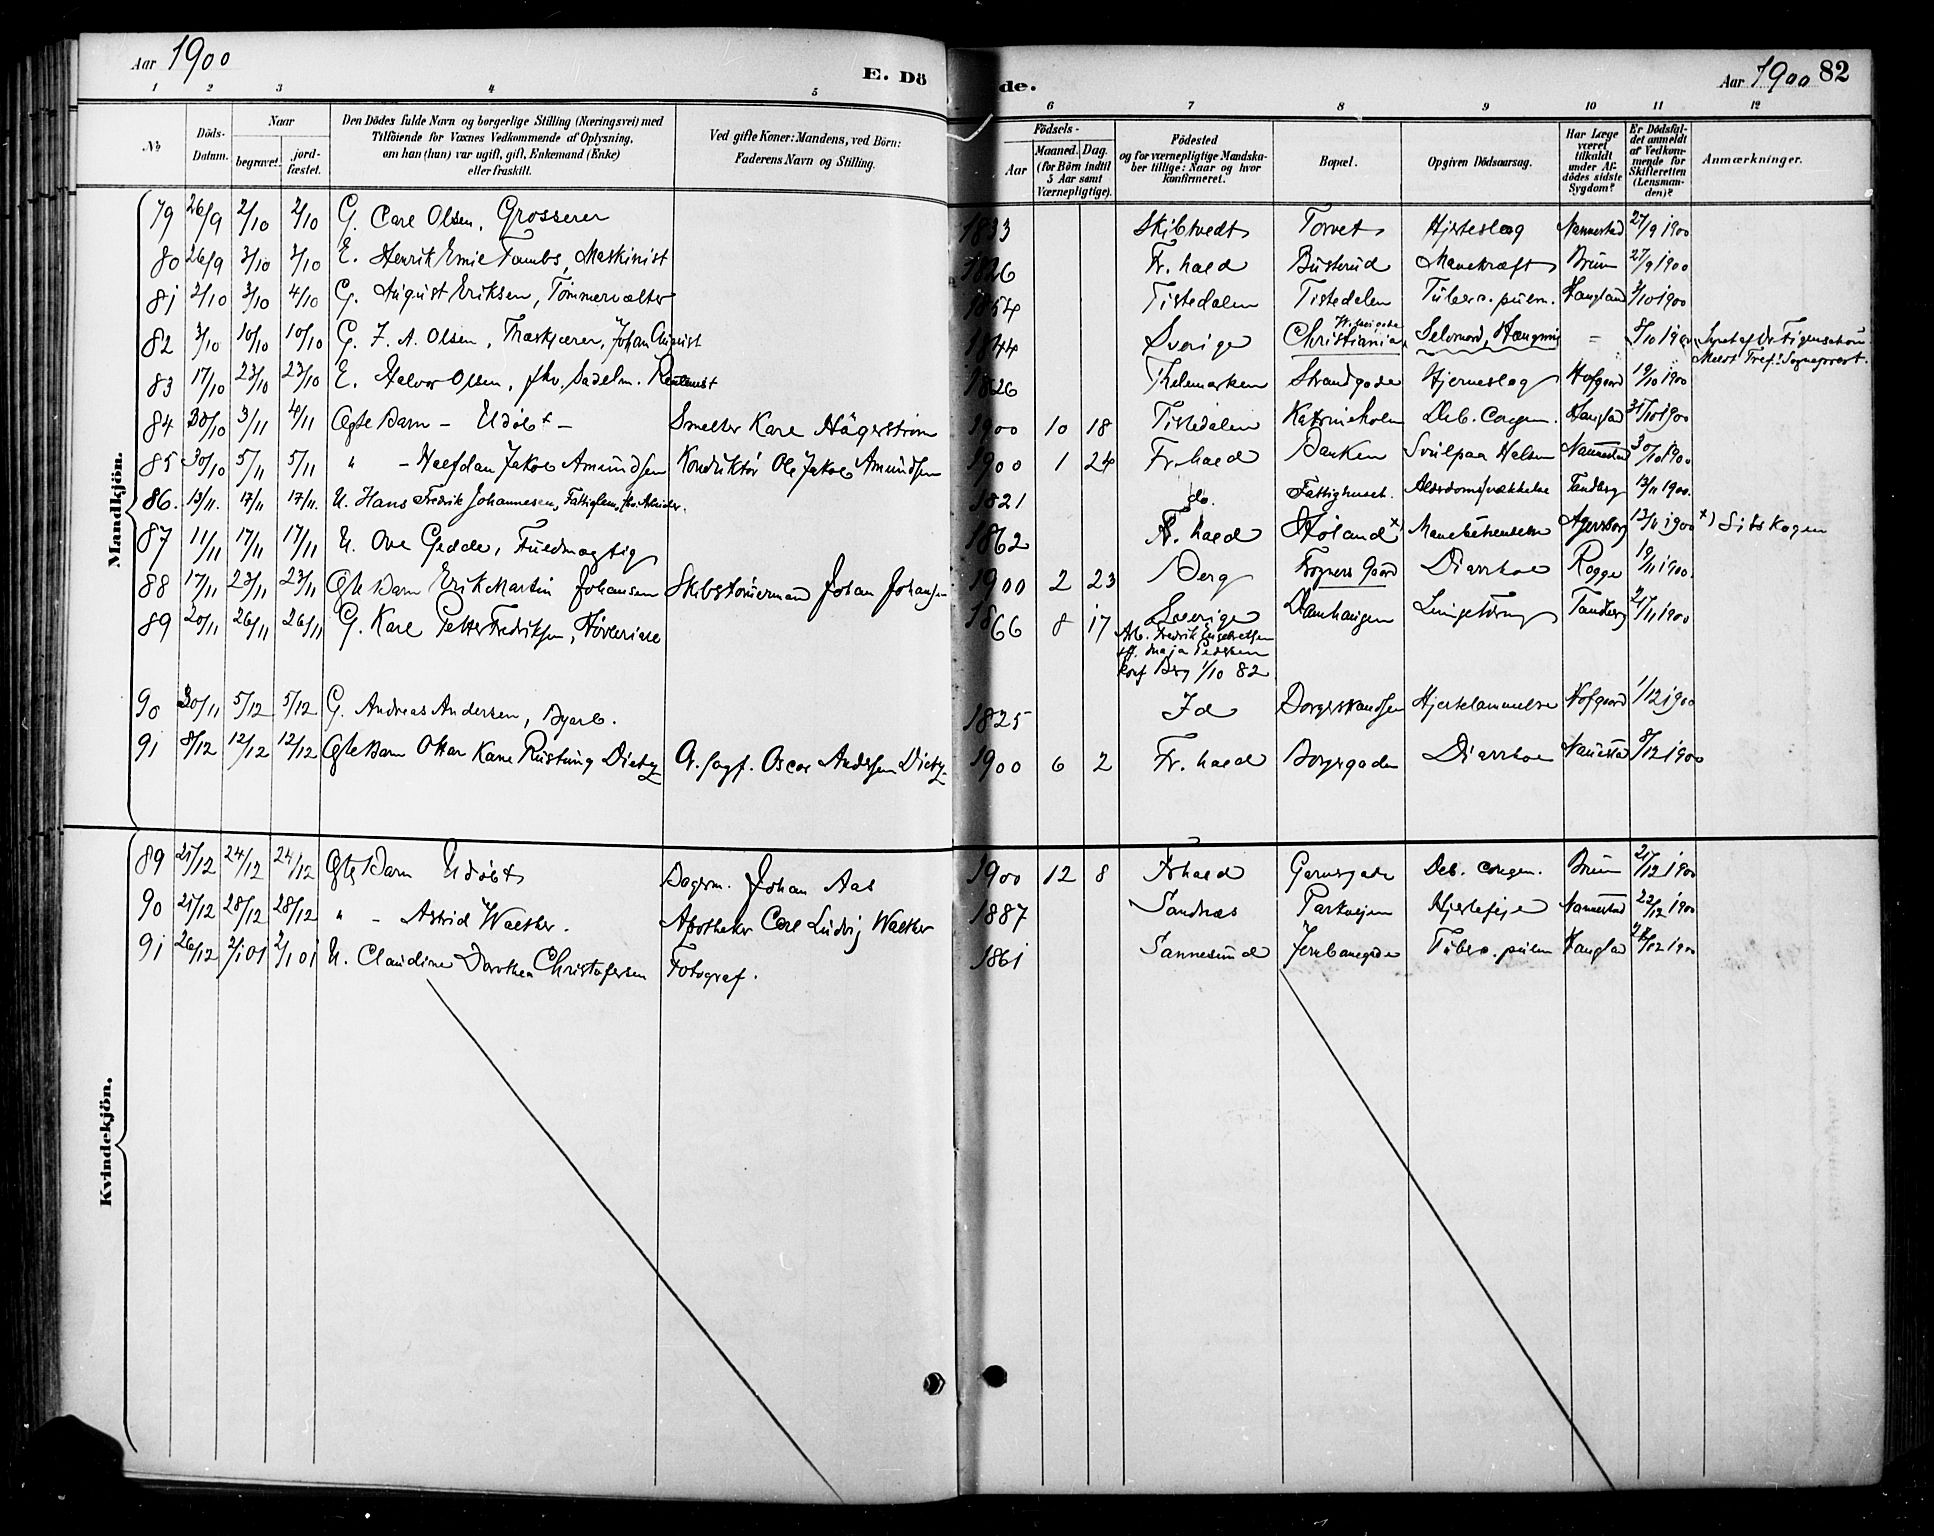 Aar 1900
E. Dö
de.
Aar 1900 82
1 2 3 4 5 6 7 8 9 10 11 12
No
Döds-
Datum.
Naar
begravet.
jord-
fæstet.
Den Dödes fulde Navn og borgerlige Stilling (Næringsvei) med
Tilföiende for Voxnes Vedkommende af Oplysning,
om han (hun) var ugift, gift, Enkemand (Enke)
eller fraskilt.
Ved gifte Koner: Mandens, ved Börn:
Faderens Navn og Stilling.
Födsels-
Aar
Maaned. Dag.
(for Börn indtil
5 Aar samt
Værnepligtige).
Födested
og for værnepligtige Mandska-
ber tillige: Naar og hvor
konfirmeret.
Bopæl.
Opgiven Dödsaarsag.
Har Læge
været
tilkaldt
under Af-
dödes sidste
Sygdom?
Er Dödsfal-
det anmeldt
af Vedkom-
mende for
Skifteretten
(Lensman-
den)?
Anmærkninger.
Mandkjön.
79 26/9 2/10 2/10 G. Carl Olsen, Grosserer 1833 Skibtvedt Torvet Hjerteslag Nannestad 27/9 1900
80 26/9 3/10 3/10 E. Henrik Emil Tambs, Maskinist 1826 Fr. hald Busterud Mavekræft Bruun 27/9 1900
81 2/10 3/10 4/10 G. August Eriksen, Tömmervælter 1854 Tistedalen Tistedalen Tuberc. pulm. 3/10 1900
82 3/10 10/10 10/10 G. J. A. Olsen, Johan August 1844 Sverige Christiania Selvmord, Hængning = 8/10 1900
83 17/10 23/10 23/10 E. Halvor Olsen, fhv. Sadelm. 1826 Thelemarken Strandgade Hjerneslag Hofgaard 19/10 1900
84 30/10 3/11 4/11 Ægte Barn - Udöbt - Smelter Karl Hägerström 1900 10 18 Tistedalen Katrineholm Deb. congen. 31/10 1900
85 30/10 5/11 5/11 " - Halfdan Jakob Amundsen Konduktör Ole Jakob Amundsen 1900 1 24 Fr-hald Banken Nannestad 30/10 1900
86. 13/11. 17/11 17/11. U. Hans Fredrik Johannesen, Fattiglem, 1821 do. Fattighuset. Alderdomssvækkelse Tandberg 13/11 1900.
87 11/11 17/11 17/11 U. Ove Gedde, Fuldmægtig 1862 Fr. hald Höland x) 12/11 1900 x)
88 17/11 23/11 23/11 Ægte Barn Erik Martin Johansen Skibstömermand Johan Johansen 1900 2 23 Berg Fogners Gaard Diarrhoe Rogge 19/11 1900.
89 20/11 26/11 26/11 G. Karl Petter Fredriksen, 1866 8 17 Sverige Damhaugen Tandberg 21/11 1900
Arb. Fredrik
Maja Pedersen
konf Berg 1/10 82
90 30/11 5/12 5/12 G. Andreas Andersen, Byarb. 1825 Id Hjertelammelse Hofgaard 1/12 1900
91 8/12 12/12 12/12 Ægte Barn Ottar Kane Rustung Dietz O.sagf. Oscar Andersen Dietz 1900 6 2 Fr. hald Borgergaden Diarrhoe 8/12 1900
Kvindekjön.
89 21/12 24/12 24/12 Ægte Barn Udöbt Bogerm. Johan Aas 1900 12 8 Frhald Garvergade Deb. congen. Bruun 21/12 1900
90 21/12 28/12 28/12 " - Astrid Walther. Apotheker Carl Ludvig Walther 1887 Sandnæs Parkvejen Hjertefejl Nannestad 22/12 1900
91 26/12 2/1 01 2/1 01 U. Claudine Dorothea Christofersen Fotograf. 1861 Sannesund Jernbanegade Tuberc. pulm 1900